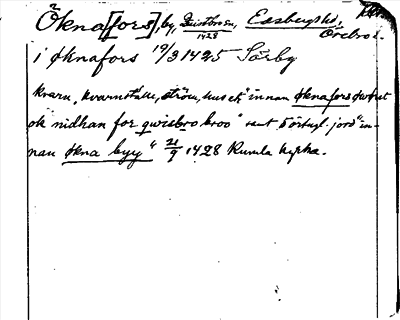 Ökna[fors], by, Qvistbro sn, Essbergshd,
1428 Örebro l.
i øknafors 19/3 1425 Sörby
kvarn, kvarnställe, ström, hus etc "innan øknafors
ok nidhan for qwisbro broo" samt 5 örtugl. jord "in-
nan økna byy" 21/9 1428 Kumla kyrka.